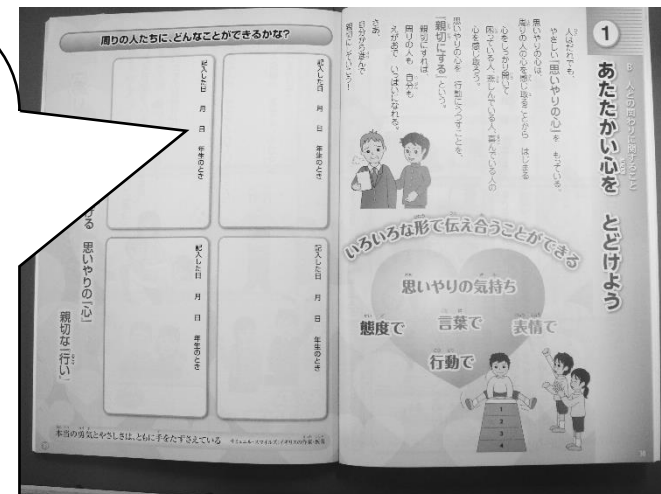 B 人との関わりに関すること
1
あたたかい心を とどけよう
人はだれでも、
やさしい「思いやりの心」を もっている。
思いやりの心は、
周りの人の心を感じ取ることから はじまる
心をしっかり開いて
困っている人、悲しんでいる人、喜んでいる人の
心を感じ取ろう。
思いやりの心を 行動にうつすことを、
「親切にする」という。
親切にすれば
周りの人も 自分も
えがおで いっぱいになれる。
さあ、
自分から進んで
親切にしていこう!
いろいろな形で伝え合うことができる
思いやりの気持ち
態度で
言葉で
表情で
行動で
1
2
3
4
周りの人たちに、どんなことができるかな?
記入した日 月 日 年生のとき
記入した日 月 日 年生のとき
記入した日 月 日 年生のとき
記入した日 月 日 年生のとき
ける 思いやりの「心」
親切な「行い」
本当の勇気とやさしさは、ともに手をたずさえている